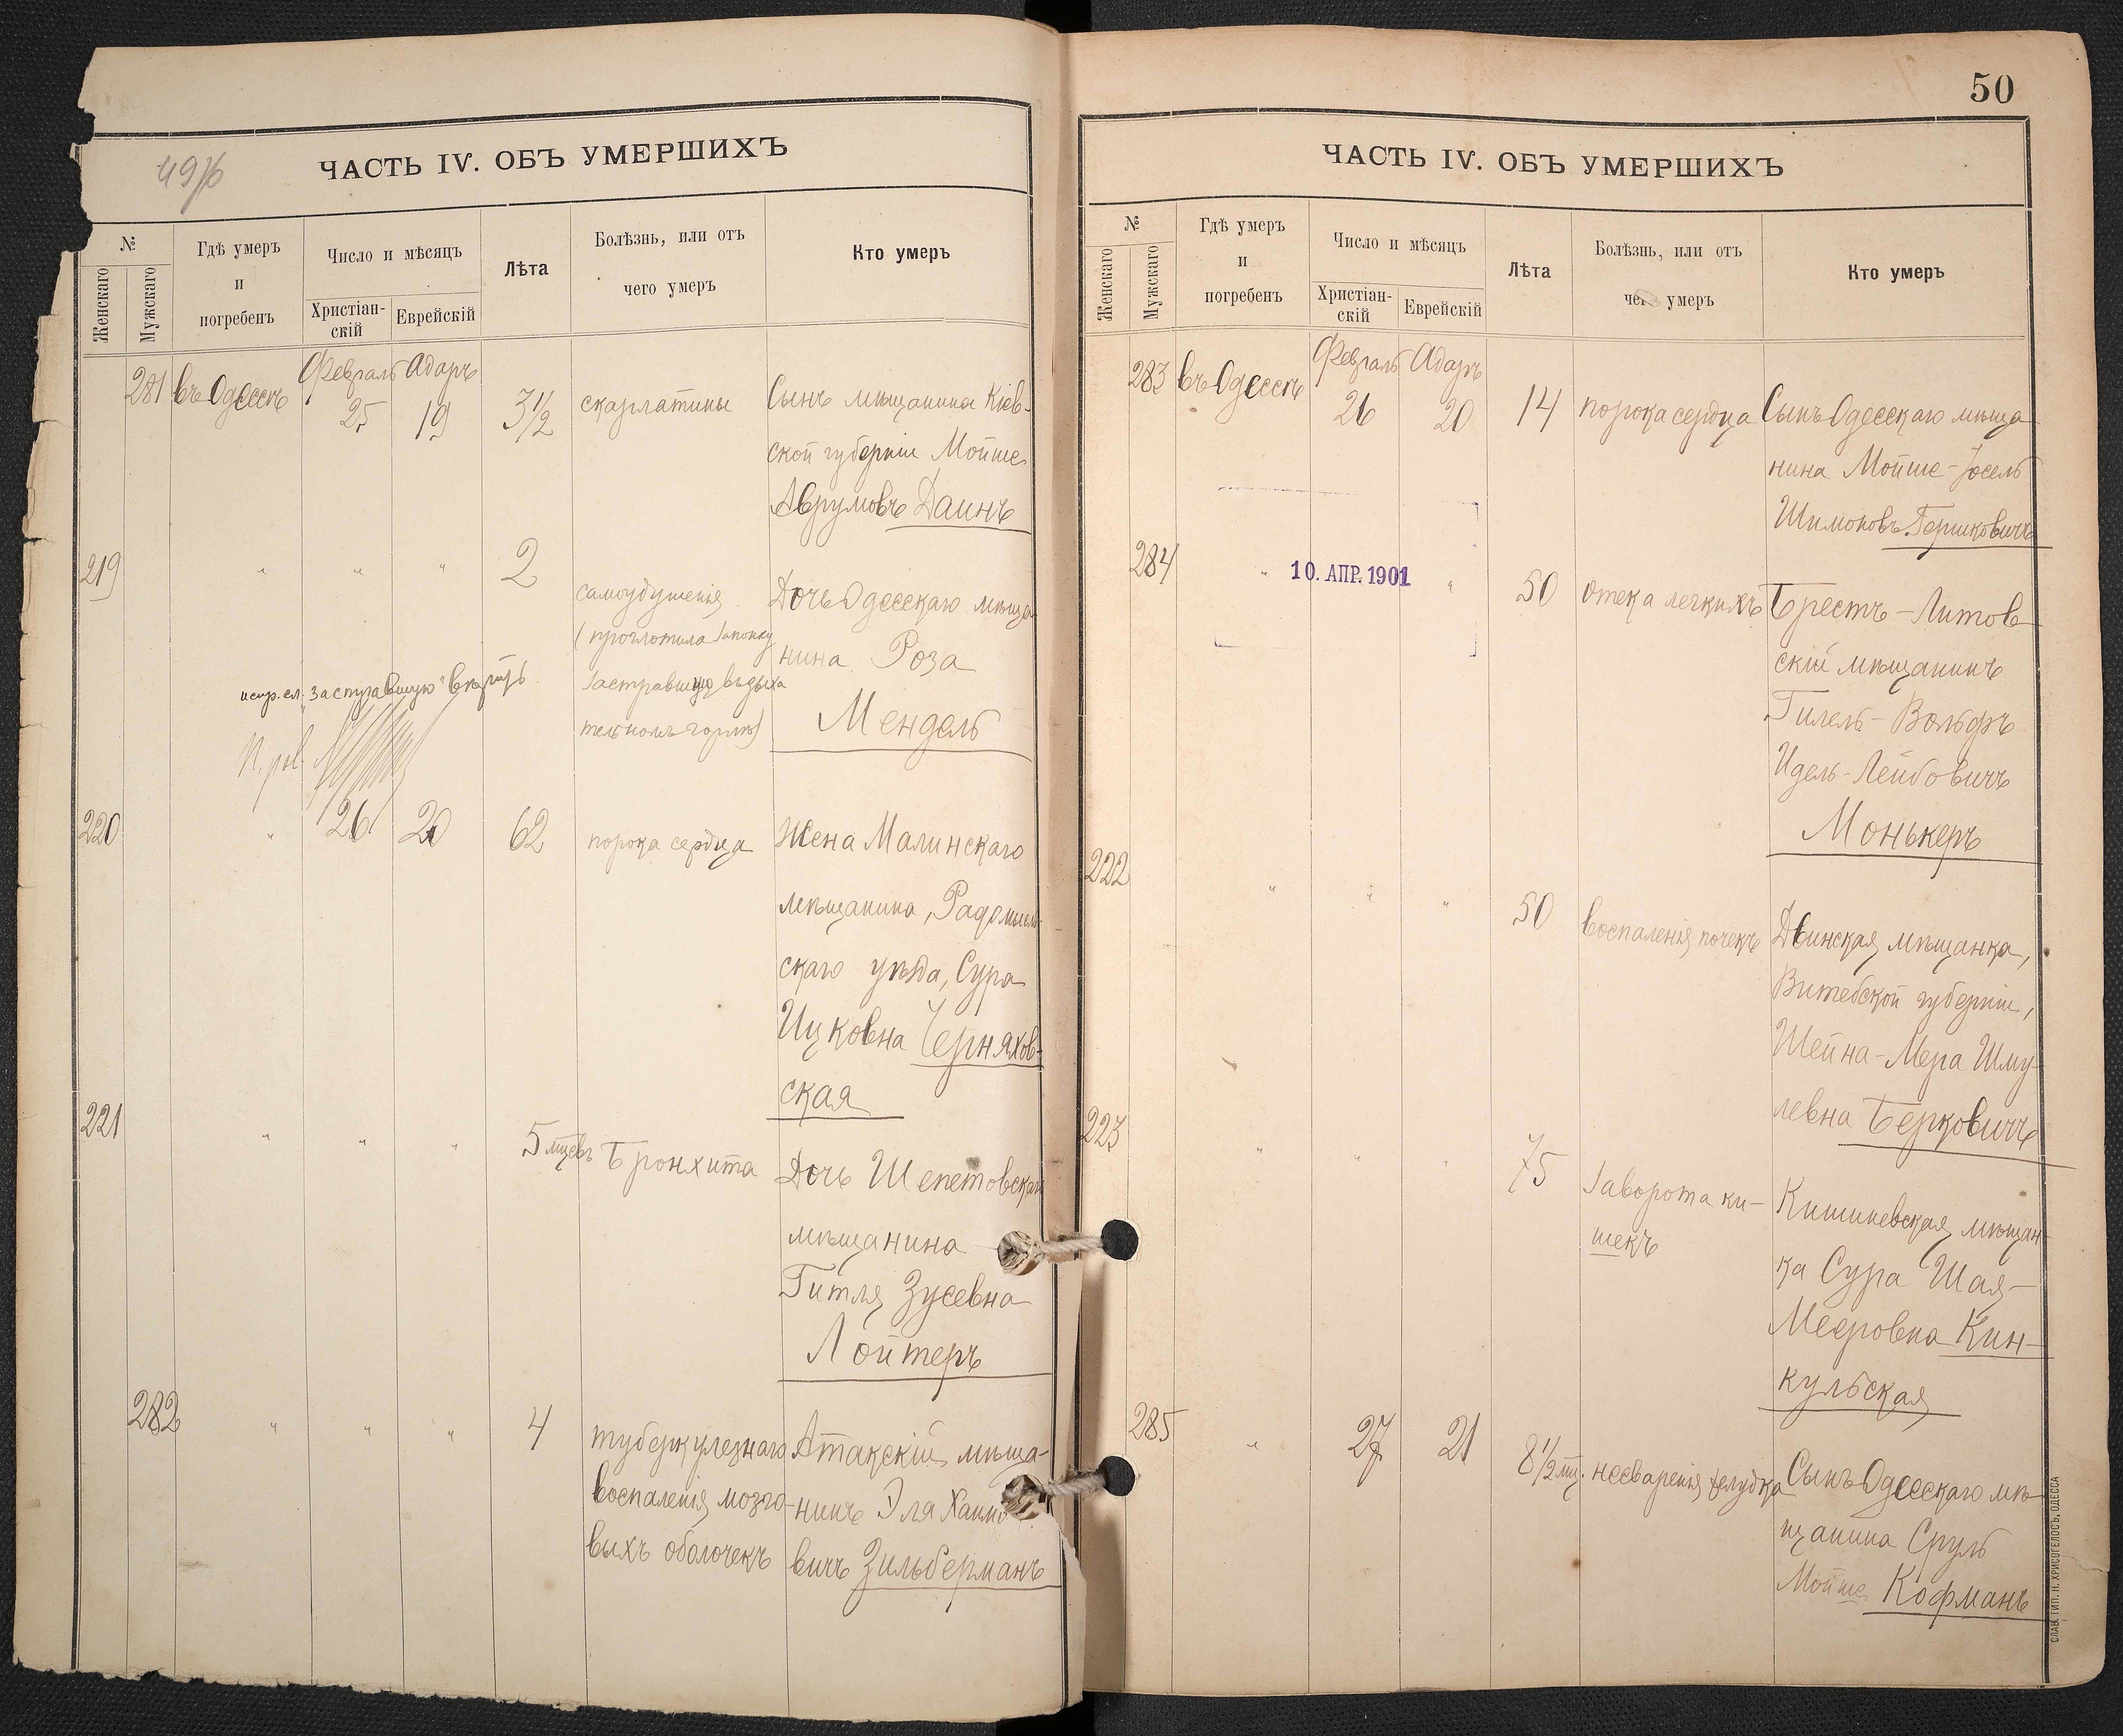 49/б
ЧАСТЬ IV. ОБЪ УМЕРШИХЪ
№
Женскаго
Мужскаго
Гдѣ умеръ
и
погребенъ
Число и мѣсяцъ
Христіан-
скій
Еврейскій
Лѣта
Болѣзнь, или отъ
чего умеръ
Кто умеръ
281 въ Одессѣ Февраль 25 Адаръ 19 3½ скарлатины Сынъ мѣщанина Кіев-
ской губерніи Мойше
Аврумовъ Даинъ
219 " " " 2 самоудушенія Дочь Одесскаго мѣща
(проглотила запонку нина Роза
застрявшую въ дыха
тельномъ горлѣ) Мендель
испр. сл. "застрявшую" вѣрить
220 " 26 20 62 порока сердца Жена Малинскаго
мѣщанина, Радомысль
скаго уѣзда, Сура
Ицковна Черняхов-
ская
221 " " " 5 мцевъ Бронхита Дочь Шепетовскаго
мѣщанина
Гитля Зусевна
Лойтеръ
282 " " " 4 туберкулезнаго Атакскій мѣща-
воспаленія мозго- нинъ Эля Хаимо
выхъ оболочекъ вичъ Зильберманъ
50
ЧАСТЬ IV. ОБЪ УМЕРШИХЪ
№
Женскаго
Мужскаго
Гдѣ умеръ
и
погребенъ
Число и мѣсяцъ
Христіан-
скій
Еврейскій
Лѣта
Болѣзнь, или отъ
чего умеръ
Кто умеръ
283 въ Одессѣ Февраль 26 Адаръ 20 14 порока сердца Сынъ Одесскаго мѣща
нина Мойше-Іосель
Шимоновъ Гершковичъ
284 " 10. АПР. 1901 " 50 отека легкихъ Брестъ-Литов
скій мѣщанинъ
Гилель-Вольфъ
Идель-Лейбовичъ
Монькеръ
222 " " " 50 воспаленія почекъ Двинская мѣщанка,
Витебской губерніи,
Шейна-Мера Шму-
левна Берковичъ
223 " " " 75 Заворота ки- Кишиневская мѣщан-
шекъ ка Сура Шая-
Мееровна Кин-
кульская
285 " 27 21 8½ мц. несваренія желудка Сынъ Одесскаго мѣ
щанина Сруль
Мойше Кофманъ
СЛАВ. ТИП. Н. ХРИСОГЕЛОСЪ, ОДЕССА